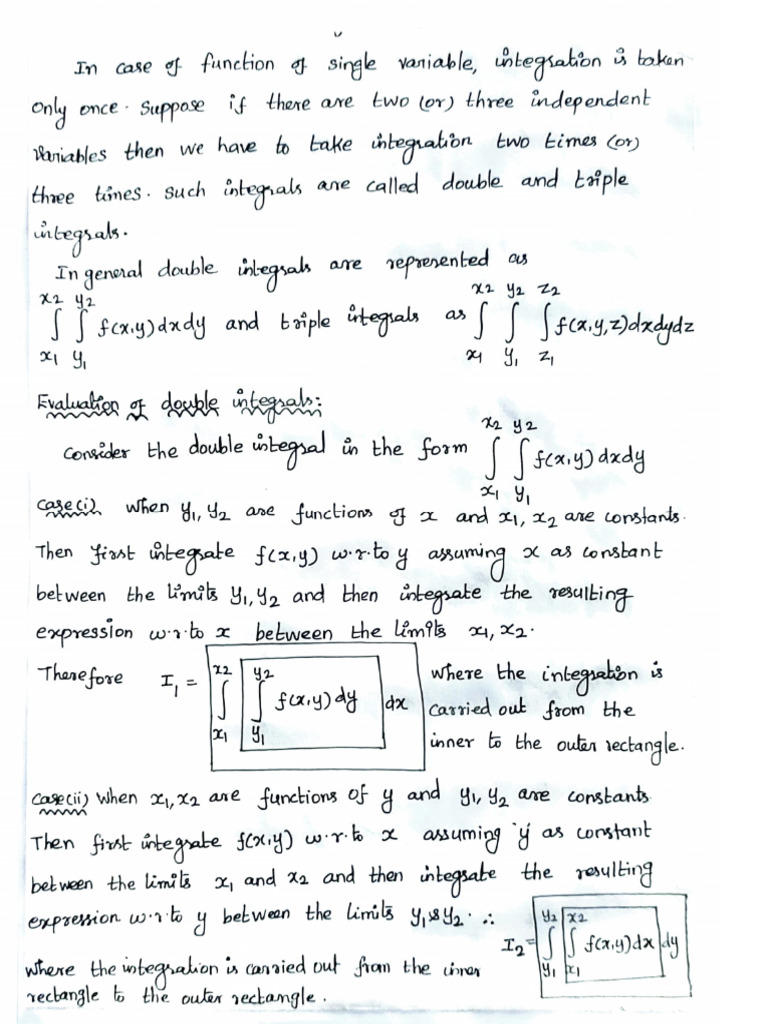 In case of function of single variable, integration is taken
only once. Suppose if there are two (or) three independent
variables then we have to take integration two times (or)
three times. Such integrals are called double and triple
integrals.
In general double integrals are represented as
∫_{x1}^{x2} ∫_{y1}^{y2} f(x,y)dxdy and triple integrals as ∫_{x1}^{x2} ∫_{y1}^{y2} ∫_{z1}^{z2} f(x,y,z)dxdydz
Evaluation of double integrals:
Consider the double integral in the form ∫_{x1}^{x2} ∫_{y1}^{y2} f(x,y)dxdy
Case(i). When y1, y2 are functions of x and x1, x2 are constants.
Then first integrate f(x,y) w.r.to y assuming x as constant
between the limits y1, y2 and then integrate the resulting
expression w.r.to x between the limits x1, x2.
Therefore I1 = ∫_{x1}^{x2} ∫_{y1}^{y2} f(x,y)dy dx where the integration is
carried out from the
inner to the outer rectangle.
Case(ii) When x1, x2 are functions of y and y1, y2 are constants.
Then first integrate f(x,y) w.r.to x assuming 'y' as constant
between the limits x1 and x2 and then integrate the resulting
expression w.r.to y between the limits y1 & y2. ∴ I2 = ∫_{y1}^{y2} ∫_{x1}^{x2} f(x,y)dx dy
where the integration is carried out from the inner
rectangle to the outer rectangle.